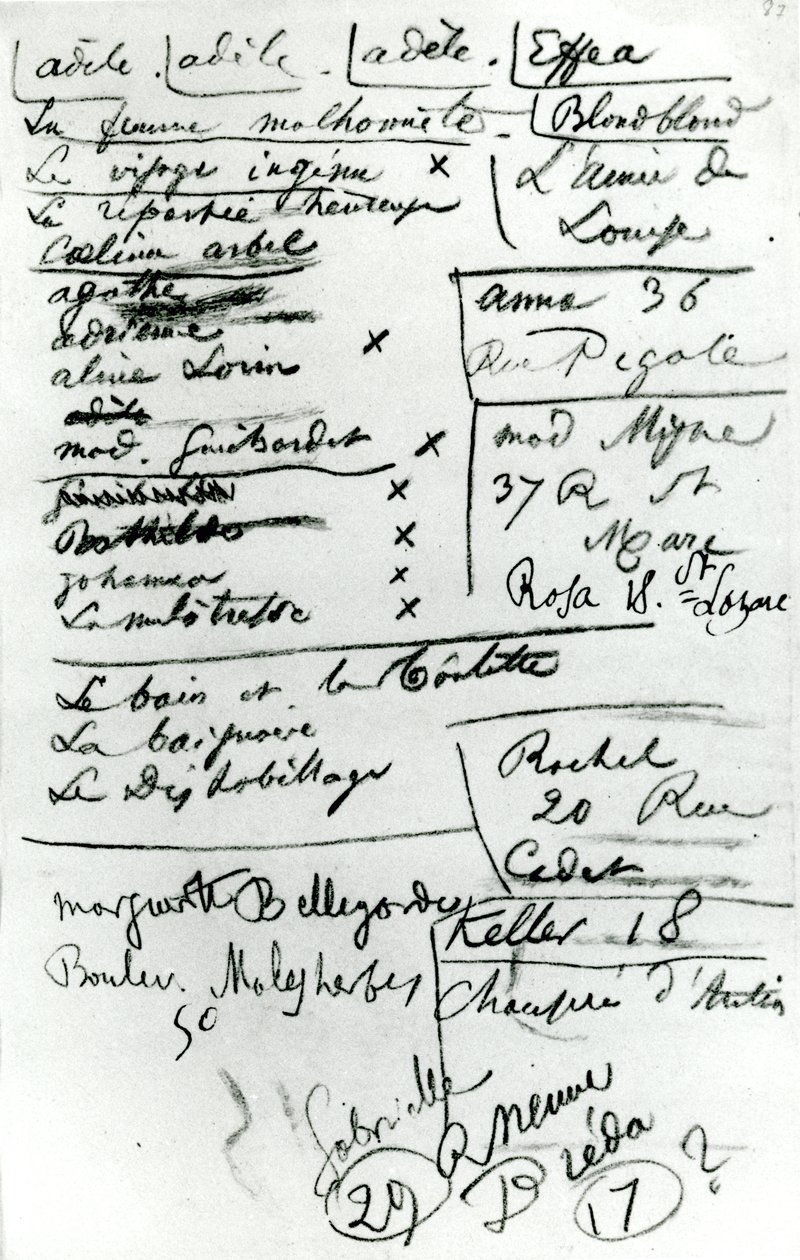 87
adèle. adèle. adèle. Effea
La femme malhonnête - Blondblond
Le visage ingénu x
L'amie de
Louise
La répartie heureuse
Coelina arbel
agathe
adrienne
aline Lorin x
adèle
mad. Guibardet x
x
x
Johamea x
La mulâtresse x
anna 36
Rue Pigale
mad
37 R St
Marc
Rosa 18. St
= Lazare
Le bain et la toilette
La baignoire
Le Déshabillage
Rachel
20 Rue
Cadet
marguerite Bellegarde
Boulev. Malesherbes
50
Keller 18
Chaussée d'Antin
Gabrielle
29
R neuve
Bréda
17 ?